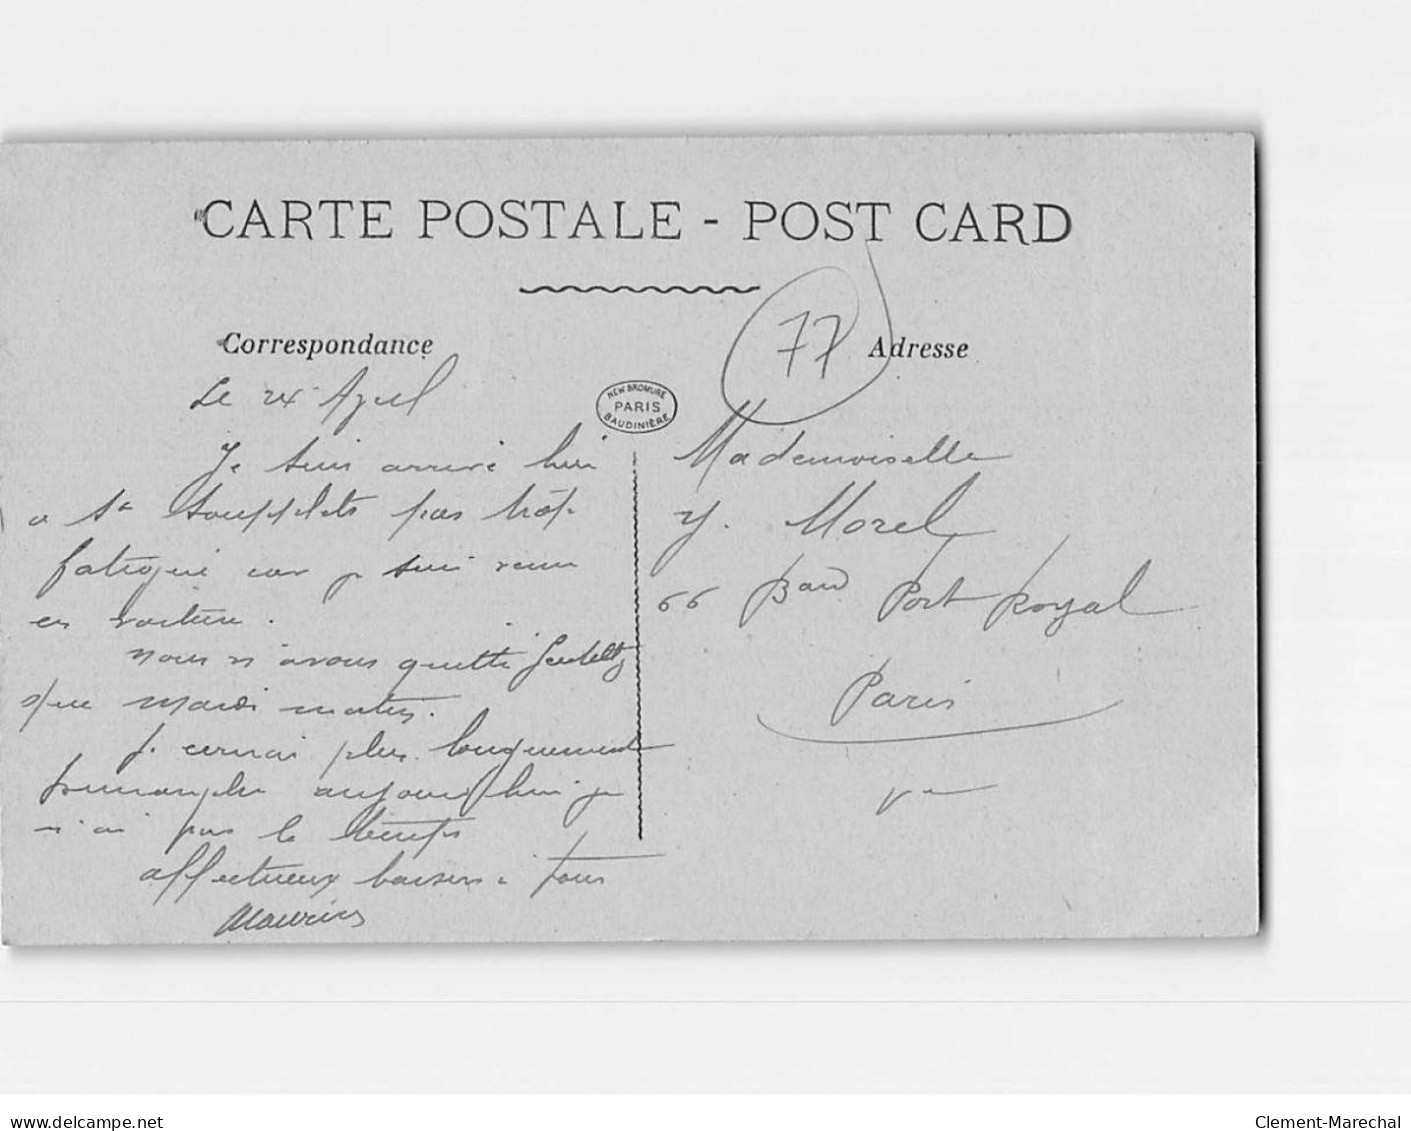 CARTE POSTALE - POST CARD
Correspondance
Le Avril
Je suis arrivé hier
a St Soupplets pas trop
fatigué car je suis venu
en voiture.
nous n'avons quitté
que mardi matin.
J. ecrirai plus longuement
aujourd'hui je
n'ai pas le temps
affectueux baisers a tous
Maurice
NEW BROMURE
PARIS
BAUDINIÈRE
77
Adresse
Mademoiselle
Y. Morel
66 Bard Port Royal
Paris
delcampe.net
Clement-Marechal